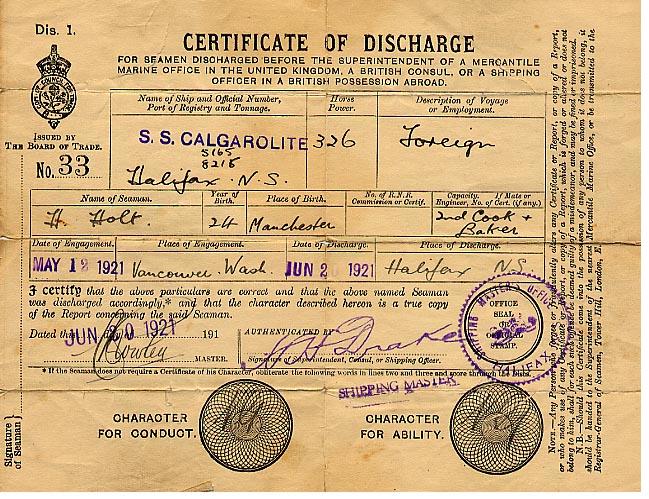 Dis. 1.
CERTIFICATE OF DISCHARGE
FOR SEAMEN DISCHARGED BEFORE THE SUPERINTENDENT OF A MERCANTILE
MARINE OFFICE IN THE UNITED KINGDOM, A BRITISH CONSUL, OR A SHIPPING
OFFICER IN A BRITISH POSSESSION ABROAD.
ISSUED BY
THE BOARD OF TRADE.
No. 33
Name of Ship and Official Number,
Port of Registry and Tonnage.
Horse
Power.
Description of Voyage
or Employment.
S. S. CALGAROLITE 326 Foreign
5165
8218
Halifax. N.S
Name of Seaman.
Year of
Birth.
Place of Birth.
No. of R.N.R.
Commission or Certif.
Capacity.
If Mate or
Engineer, No. of Cert. (if any).
H Holt. 24 Manchester 2nd Cook &
Baker
Date of Engagement. Place of Engagement. Date of Discharge. Place of Discharge.
MAY 12 1921 Vancouver. Wash. JUN 20 1921 Halifax N.S.
I certify that the above particulars are correct and that the above named Seaman
was discharged accordingly,* and that the character described hereon is a true copy
of the Report concerning the said Seaman.
Dated this JUN 20 1921 191
AUTHENTICATED BY
Drake
MASTER.
Signature of Superintendent, Consul, or Shipping Officer.
SHIPPING MASTER
* If the Seaman does not require a Certificate of his Character, obliterate the following words in lines two and three and score through the Disks.
SHIPPING MASTER'S OFFICE
HALIFAX
OFFICE
SEAL
OR
OFFICIAL
STAMP.
CHARACTER
FOR CONDUCT.
CHARACTER
FOR ABILITY.
Signature
of Seaman
NOTE.—Any Person who forges or fraudulently alters any Certificate or Report, or copy of a Report,
or who makes use of any Certificate or Report, or copy of a Report, which is forged or altered or does not
belong to him, shall for each such offence be deemed guilty of a misdemeanor, and may be fined or imprisoned.
N.B.—Should this Certificate come into the possession of any person to whom it does not belong, it
should be handed to the Superintendent of the nearest Mercantile Marine Office, or be transmitted to the
Registrar-General of Seamen, Tower Hill, London,